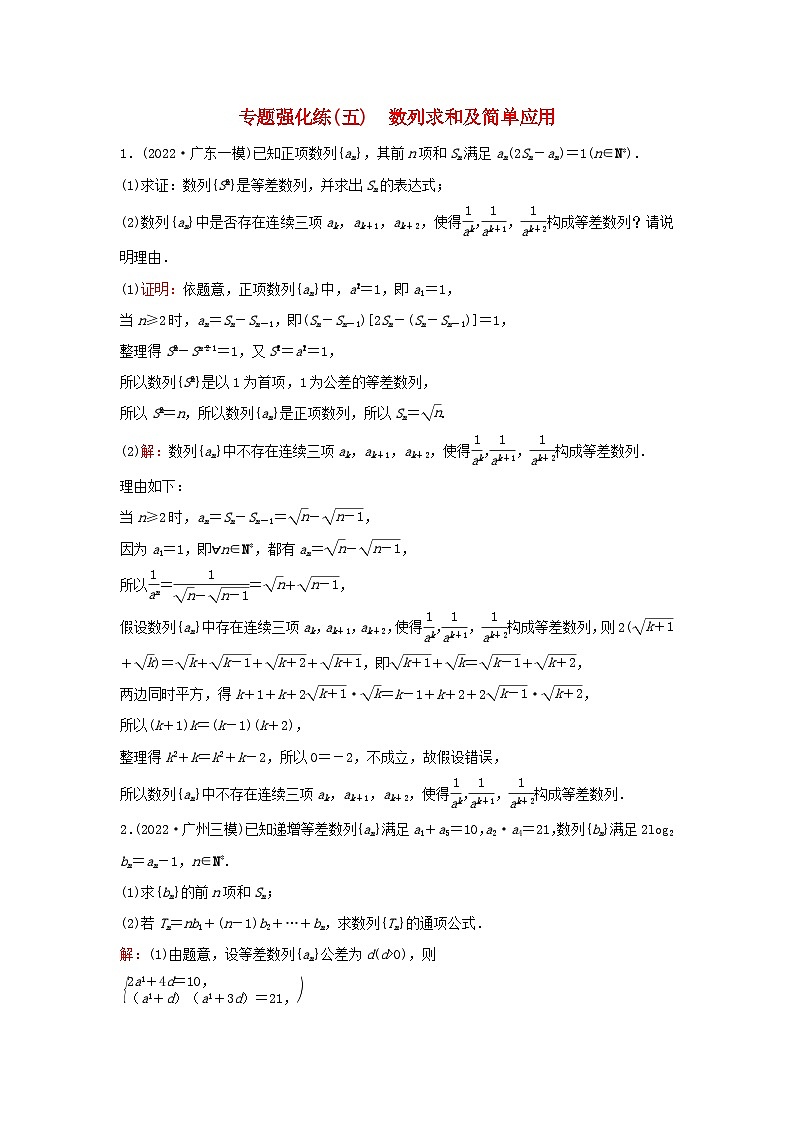 专题强化练(五)　数列求和及简单应用
1．(2022·广东一模)已知正项数列{aₙ}，其前n项和Sₙ满足aₙ(2Sₙ－aₙ)＝1(n∈N*)．
(1)求证：数列{S²ₙ}是等差数列，并求出Sₙ的表达式；
(2)数列{aₙ}中是否存在连续三项aₖ，aₖ₊₁，aₖ₊₂，使得1/aₖ，1/aₖ₊₁，1/aₖ₊₂构成等差数列？请说
明理由．
(1)证明：依题意，正项数列{aₙ}中，a²₁＝1，即a₁＝1，
当n≥2时，aₙ＝Sₙ－Sₙ₋₁，即(Sₙ－Sₙ₋₁)[2Sₙ－(Sₙ－Sₙ₋₁)]＝1，
整理得S²ₙ－S²ₙ₋₁＝1，又S²₁＝a²₁＝1，
所以数列{S²ₙ}是以1为首项，1为公差的等差数列，
所以S²ₙ＝n，所以数列{aₙ}是正项数列，所以Sₙ＝√n.
(2)解：数列{aₙ}中不存在连续三项aₖ，aₖ₊₁，aₖ₊₂，使得1/aₖ，1/aₖ₊₁，1/aₖ₊₂构成等差数列．
理由如下：
当n≥2时，aₙ＝Sₙ－Sₙ₋₁＝√n－√(n－1)，
因为a₁＝1，即∀n∈N*，都有aₙ＝√n－√(n－1)，
所以1/aₙ＝1/(√n－√(n－1))＝√n＋√(n－1)，
假设数列{aₙ}中存在连续三项aₖ，aₖ₊₁，aₖ₊₂，使得1/aₖ，1/aₖ₊₁，1/aₖ₊₂构成等差数列，则2(√(k＋1)
＋√k)＝√k＋√(k－1)＋√(k＋2)＋√(k＋1)，即√(k＋1)＋√k＝√(k－1)＋√(k＋2)，
两边同时平方，得k＋1＋k＋2√(k＋1)·√k＝k－1＋k＋2＋2√(k－1)·√(k＋2)，
所以(k＋1)k＝(k－1)(k＋2)，
整理得k²＋k＝k²＋k－2，所以0＝－2，不成立，故假设错误，
所以数列{aₙ}中不存在连续三项aₖ，aₖ₊₁，aₖ₊₂，使得1/aₖ，1/aₖ₊₁，1/aₖ₊₂构成等差数列．
2．(2022·广州三模)已知递增等差数列{aₙ}满足a₁＋a₅＝10，a₂·a₄＝21，数列{bₙ}满足2log₂
bₙ＝aₙ－1，n∈N*．
(1)求{bₙ}的前n项和Sₙ；
(2)若Tₙ＝nb₁＋(n－1)b₂＋…＋bₙ，求数列{Tₙ}的通项公式．
解：(1)由题意，设等差数列{aₙ}公差为d(d>0)，则
{2a¹＋4d＝10，
（a¹＋d）（a¹＋3d）＝21，)